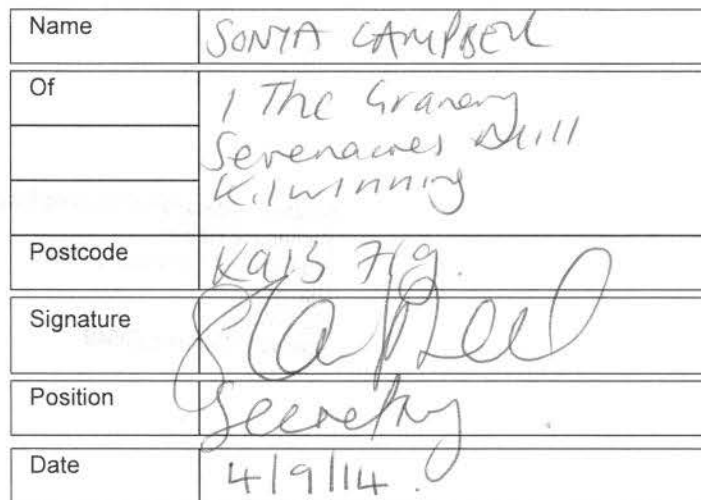 Name SONYA CAMPBELL
Of 1 The Granary
Sevenacres Mill
Kilwinning
Postcode KA13
Signature
Position Secretary
Date 4/9/14.